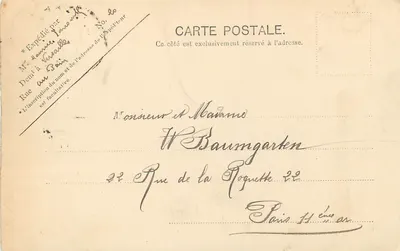 CARTE POSTALE.
Ce côté est exclusivement réservé à l'adresse.
* Expédié par
M
Dem^t à Versailles
Rue au Pain No. 20
* L'inscription du nom et de l'adresse de l'expéditeur
est facultative.
Monsieur et Madame
W Baumgarten
22 Rue de la Roquette 22
Paris 11ème ar